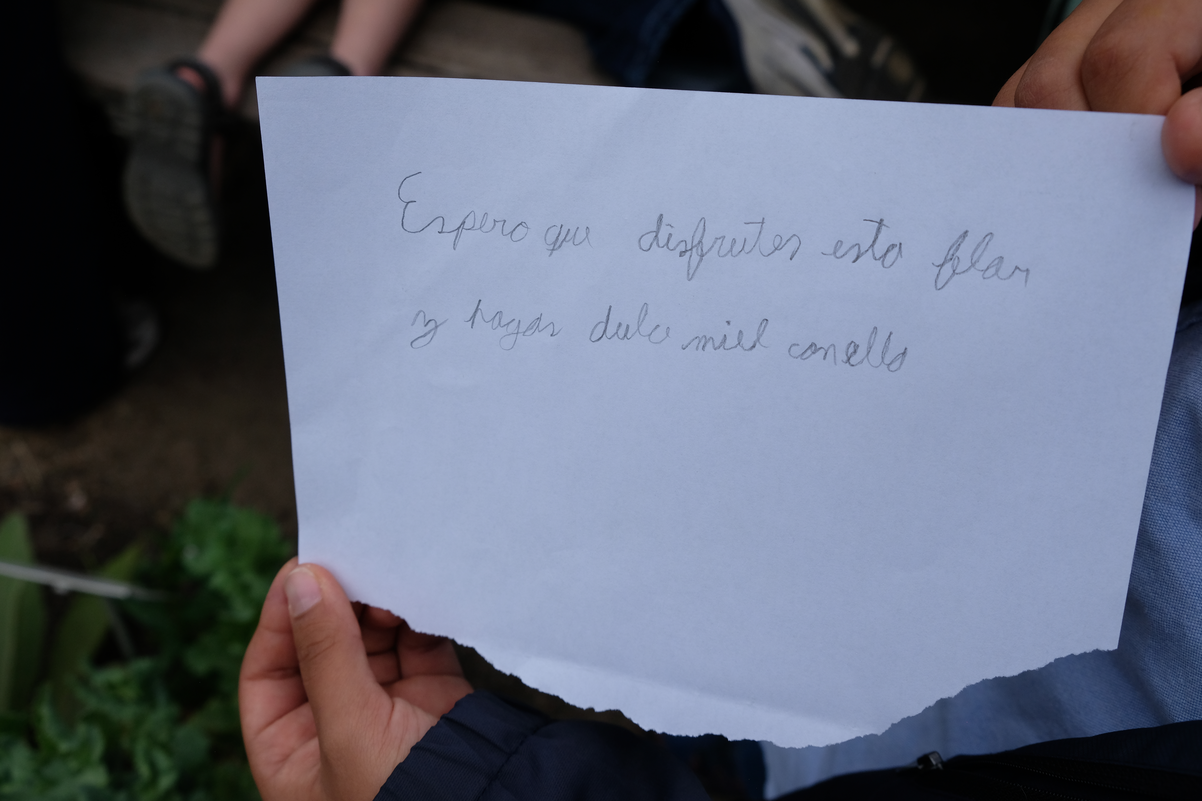 Espero que disfrutes esta
y hagas dulce miel con ello